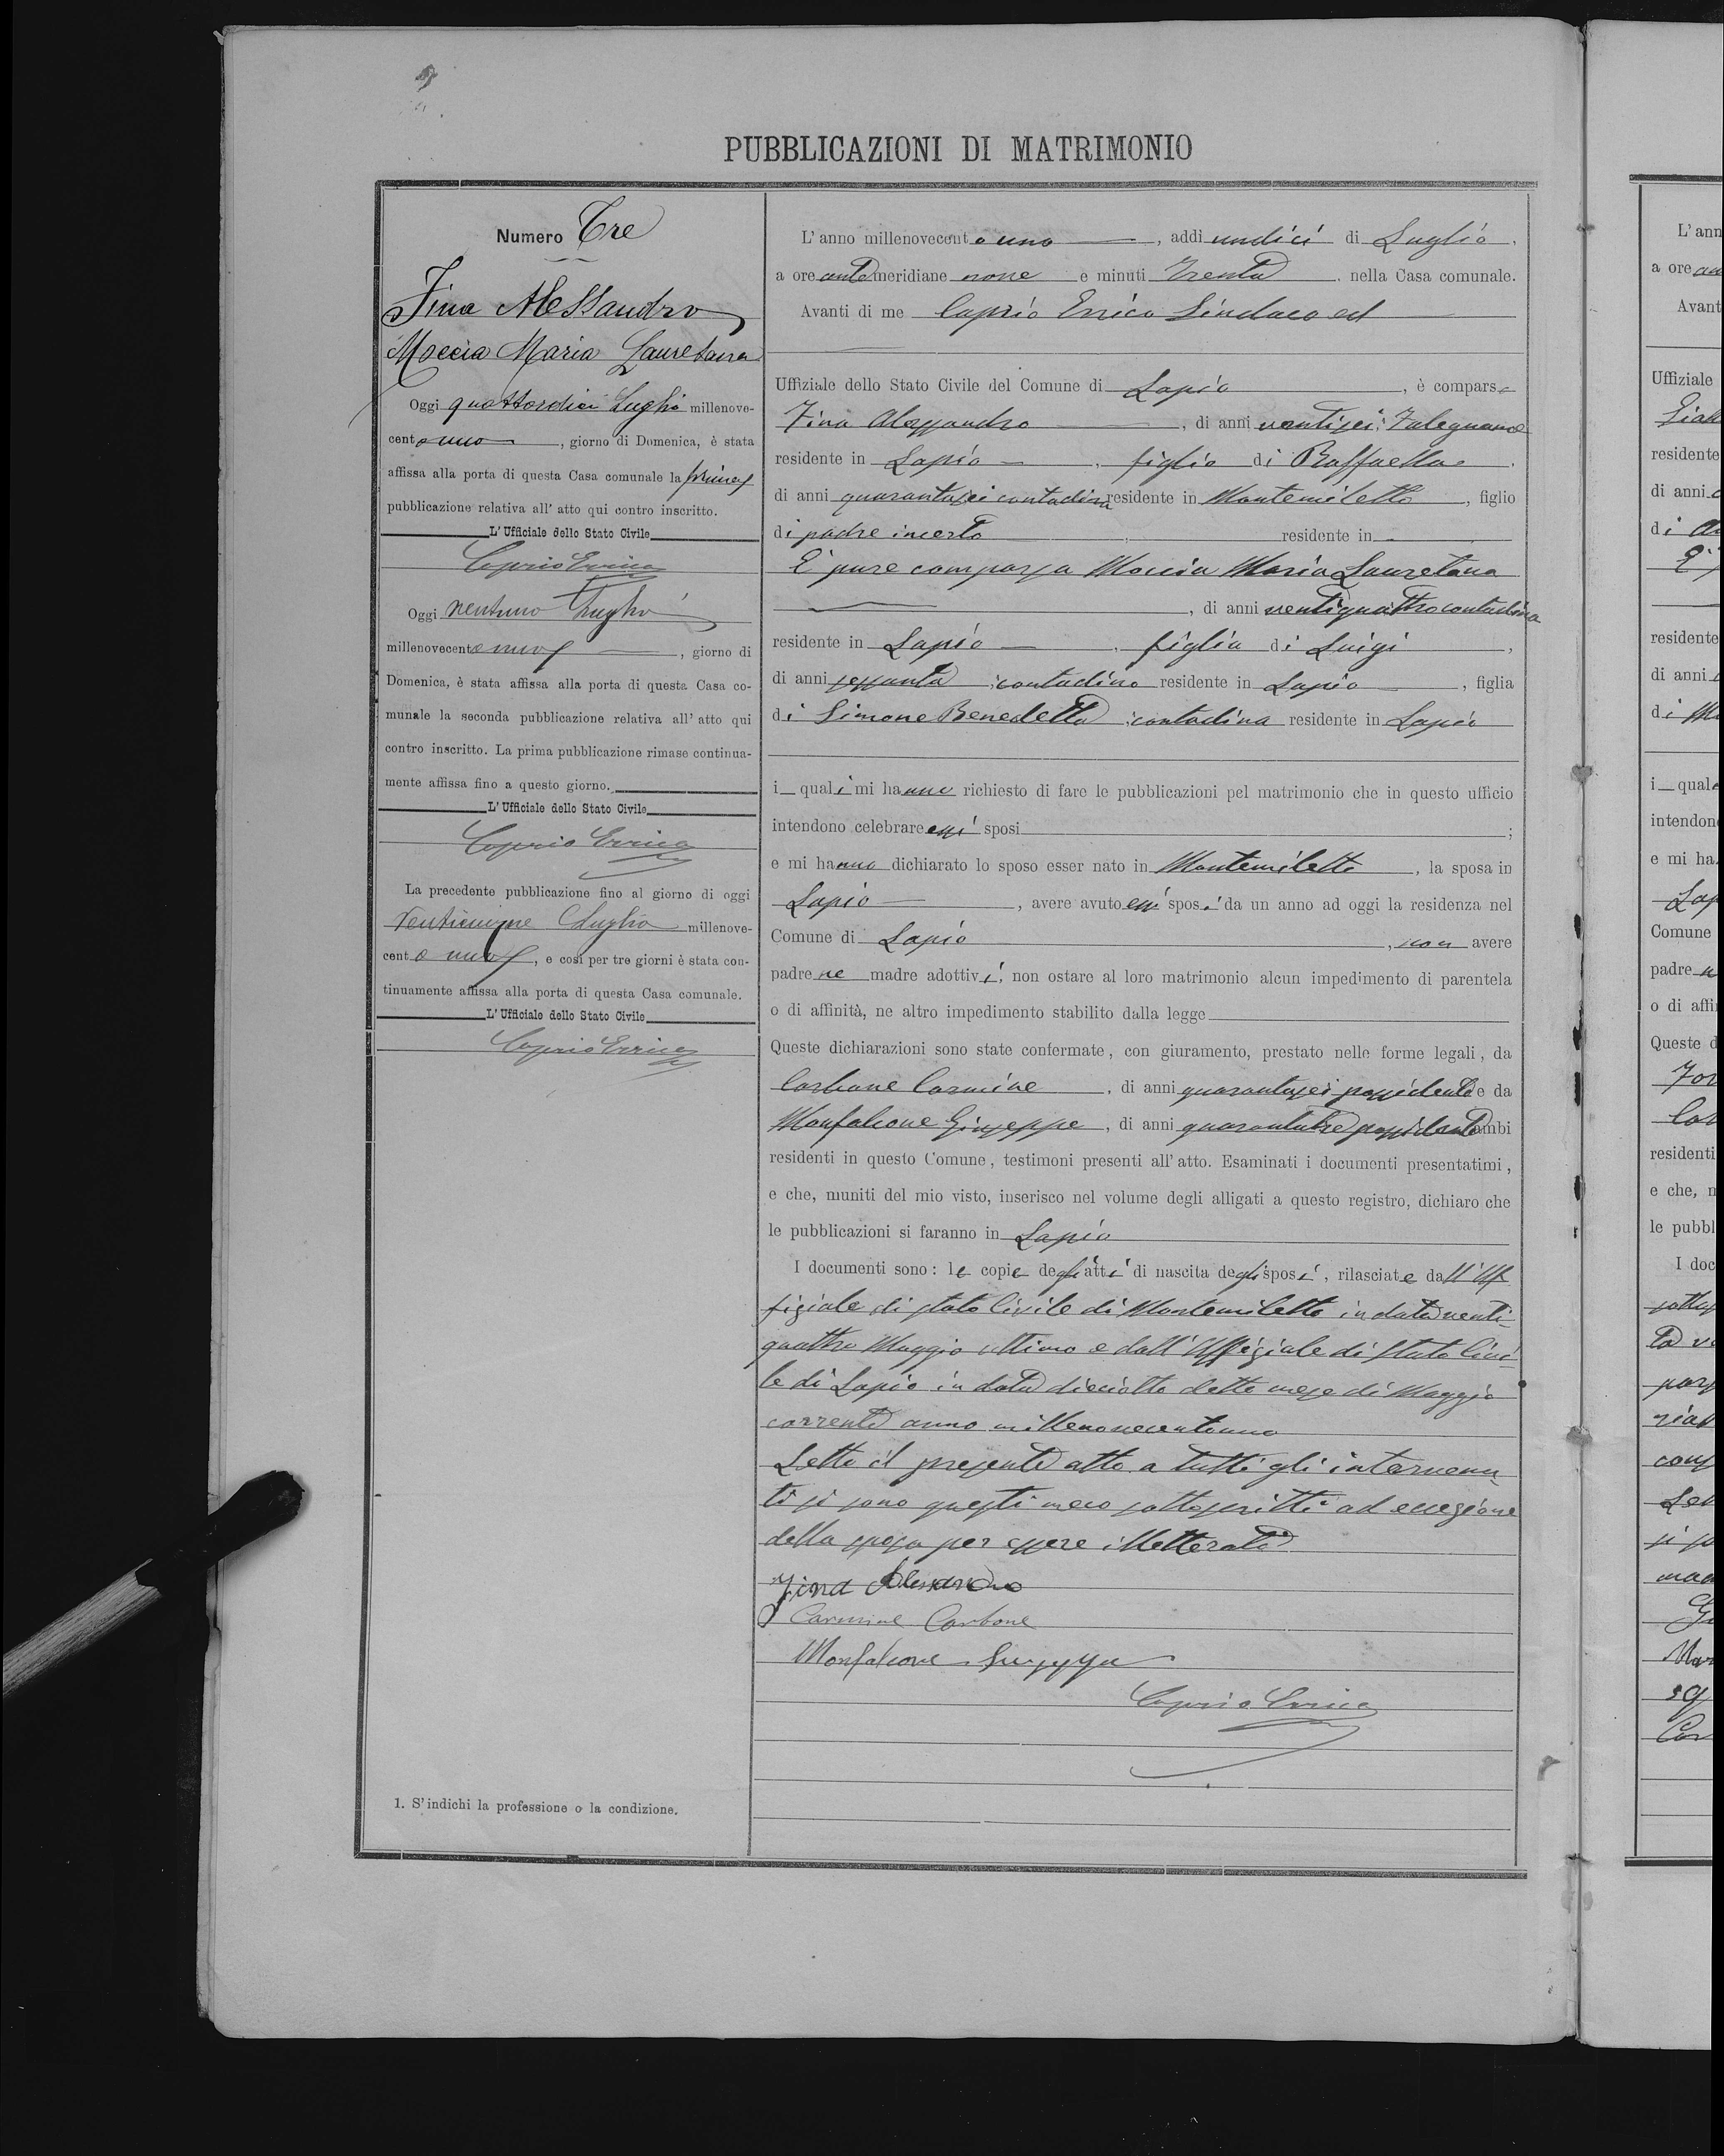 PUBBLICAZIONI DI MATRIMONIO
Numero Tre
Fina Alessandro
Moccia Maria Lauretana
Oggi quattordici Luglio millenove-
cento uno, giorno di Domenica, è stata
affissa alla porta di questa Casa comunale la prima
pubblicazione relativa all' atto qui contro inscritto.
L'Ufficiale dello Stato Civile
Caprio Errico
Oggi ventuno Luglio
millenovecento uno, giorno di
Domenica, è stata affissa alla porta di questa Casa co-
munale la seconda pubblicazione relativa all' atto qui
contro inscritto. La prima pubblicazione rimase continua-
mente affissa fino a questo giorno.
L'Ufficiale dello Stato Civile
Caprio Errico
La precedente pubblicazione fino al giorno di oggi
Luglio millenove-
cento uno, e così per tre giorni è stata con-
tinuamente affissa alla porta di questa Casa comunale.
L'Ufficiale dello Stato Civile
Caprio Errico
1. S'indichi la professione o la condizione.
L'anno millenovecento uno, addì undici di Luglio,
a ore antemeridiane nove e minuti trenta, nella Casa comunale.
Avanti di me Caprio Errico Sindaco ed
Uffiziale dello Stato Civile del Comune di Lapio, è comparso
Fina Alessandro, di anni ventisei, Falegname
residente in Lapio, figlio di Raffaella,
di anni quarantasei contadina residente in Montemiletto, figlio
di padre incerto residente in
È pure comparsa Moccia Maria Lauretana
, di anni ventiquattro contadina
residente in Lapio, figlia di Luigi,
di anni sessanta, contadino residente in Lapio, figlia
di Simone Benedetta, contadina residente in Lapio
i quali mi hanno richiesto di fare le pubblicazioni pel matrimonio che in questo ufficio
intendono celebrare essi sposi;
e mi hanno dichiarato lo sposo esser nato in Montemiletto, la sposa in
Lapio, avere avuto essi sposi da un anno ad oggi la residenza nel
Comune di Lapio, non avere
padre ne madre adottivi, non ostare al loro matrimonio alcun impedimento di parentela
o di affinità, ne altro impedimento stabilito dalla legge
Queste dichiarazioni sono state confermate, con giuramento, prestato nelle forme legali, da
Carbone Carmine, di anni quarantasei possidente e da
Monfalcone Giuseppe, di anni quarantatre possidente ambi
residenti in questo Comune, testimoni presenti all' atto. Esaminati i documenti presentatimi,
e che, muniti del mio visto, inserisco nel volume degli alligati a questo registro, dichiaro che
le pubblicazioni si faranno in Lapio
I documenti sono: le copie degli atti di nascita degli sposi, rilasciate dall'Uf
fiziale di stato Civile di Montemiletto in data venti
quattro Maggio ultimo e dall'Uffiziale di Stato Civi
le di Lapio in data dieciotto detto mese di Maggio
corrente anno millenovecentouno
Letto il presente atto a tutti gli intervenu
ti si sono questi meco sottoscritti ad eccezione
della sposa per essere illetterata
Fina Alessandro
Carmine Carbone
Monfalcone Giuseppe
Caprio Errico
L'ann
a ore an
Avant
Uffiziale
residente
di anni
di
residente
di anni
di
i qual
intendon
e mi ha
Lap
Comune
padre
o di affi
Queste d
residenti
e che, n
le pubbl
I doc